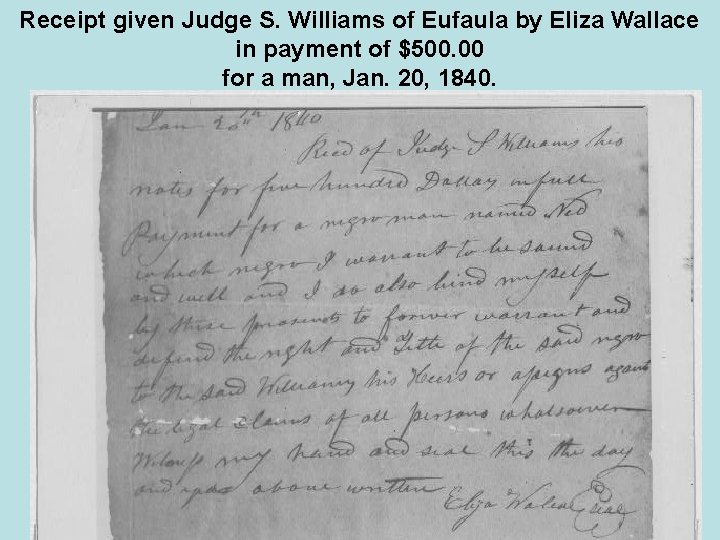 Receipt given Judge S. Williams of Eufaula by Eliza Wallace
in payment of $500. 00
for a man, Jan. 20, 1840.
Jan 20th 1840
Recd of Judge S Williams his
notes for five hundred Dollars in full
Payment for a negro man named Ned
which negro I warrant to be sound
and well and I do also bind myself
by these presents to forever warrant and
defend the right and Title of the said negro
to the said Williams his Heirs or assigns against
the legal claims of all persons whatsoever
Witness my hand and seal this the day
and year above written
Eliza Wallace Seal